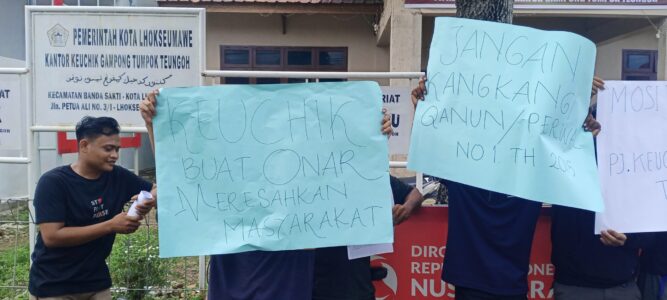 PEMERINTAH KOTA LHOKSEUMAWE
KANTOR KEUCHIK GAMPONG TUMPOK TEUNGOH
KECAMATAN BANDA SAKTI - KOTA L
Jln. PETUA ALI NO. 3/1 - LHOKS
KEUCHIK
BUAT ONAR
MERESAHKAN
MASYARAKAT
JANGAN
KANGKANGI
QANUN/PER
NO 1 TH 2015
MOSI
PJ. KEUC
T
DIRG
REP ONE
NUS ARA